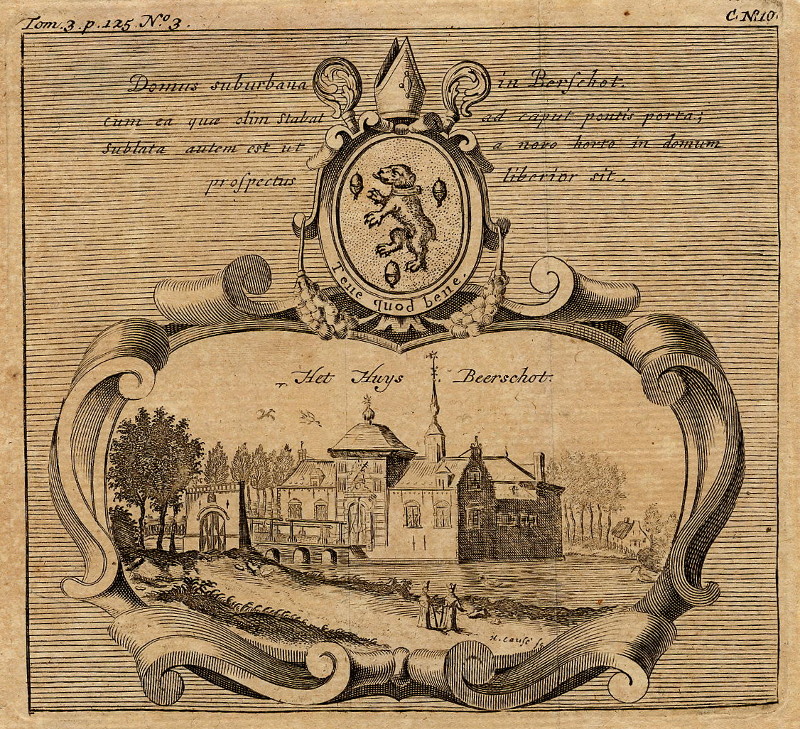 Tom. 3. p. 125. No. 3.
C. N. 10.
Domus suburbana in Berſchot.
cum ea quæ olim stabat ad caput pontis porta;
Sublata autem est ut a novo horto in domum
proſpectus liberior sit.
Tene quod bene.
Het Huys Beerschot.
H. Causé fe